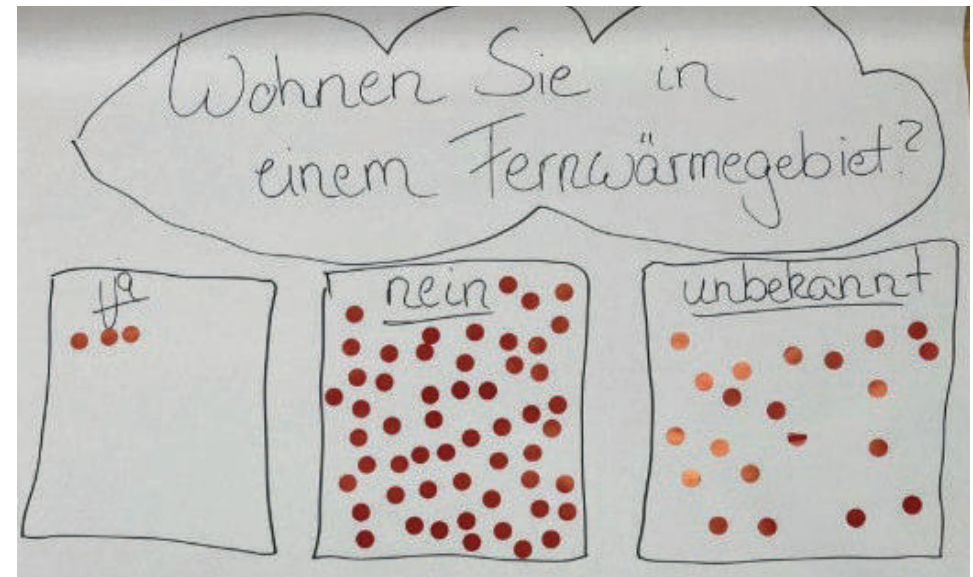 Wohnen Sie in
einem Fernwärmegebiet?
ja
nein
unbekannt